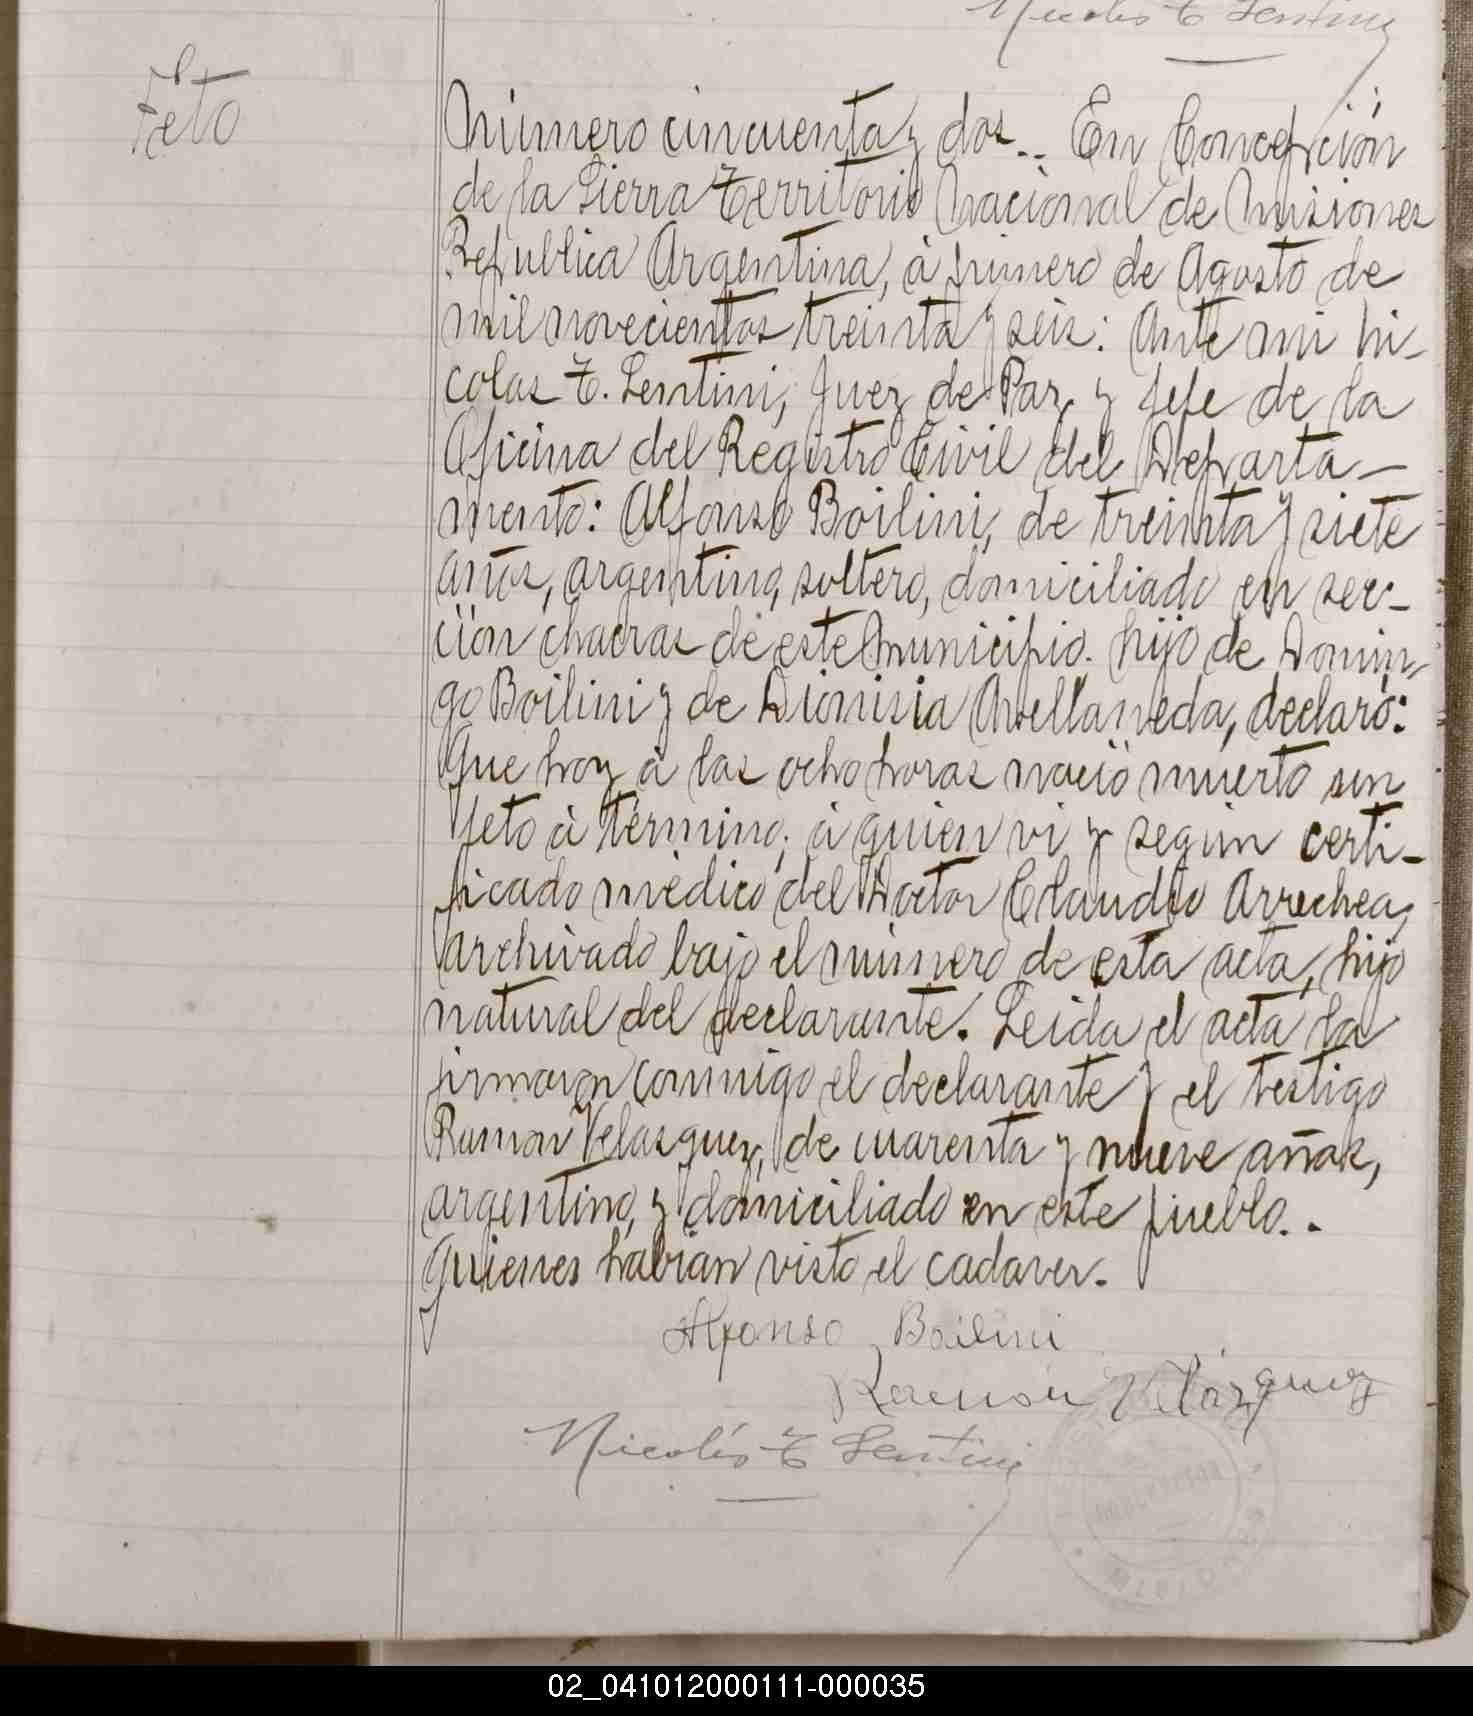 Nicolás T Lentini
Feto
Número cincuenta y dos.. En Concepción
de la Sierra Territorio Nacional de Misiones
Republica Argentina, à primero de Agosto de
mil novecientos treinta y seis: Ante mi Ni-
colas T. Lentini, Juez de Paz y Jefe de la
Oficina del Registro Civil del Departa-
mento: Alfonso Boilini, de treinta y siete
años, argentino, soltero, domiciliado en sec-
ción chacras de este Municipio. hijo de Domin-
go Boilini y de Dionisia Avellaneda, declaró:
Que hoy à las ocho horas nació muerto un
feto à término; à quien vi y según certi-
ficado médico del Doctor Claudio Arrechea,
archivado bajo el número de esta acta, hijo
natural del declarante. Leida el acta la
firmaron conmigo el declarante y el testigo
Ramon Velasquez, de cuarenta y nueve años,
argentino, y domiciliado en este pueblo..
Quienes habian visto el cadaver.
Alfonso Boilini
Ramon Velázquez
Nicolás T Lentini
02_041012000111-000035